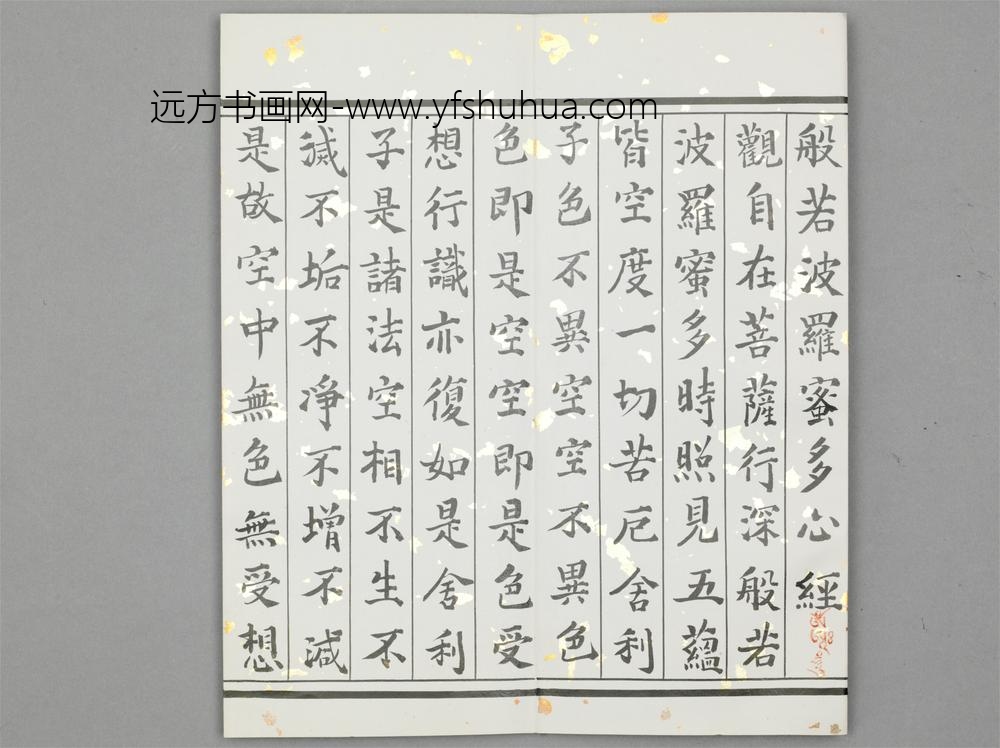 远方书画网-www.yfshuhua.com
般若波羅蜜多心經
觀自在菩薩行深般若
波羅蜜多時照見五蘊
皆空度一切苦厄舍利
子色不異空空不異色
色即是空空即是色受
想行識亦復如是舍利
子是諸法空相不生不
滅不垢不凈不增不減
是故空中無色無受想